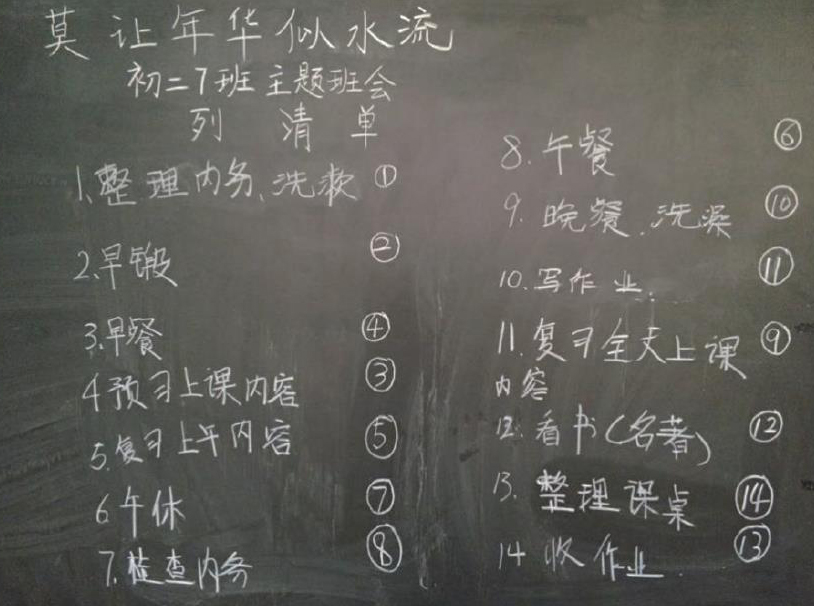 莫让年华似水流
初二7班主题班会
列清单
1.整理内务、洗漱 ①
2.早锻 ②
3.早餐 ④
4预习上课内容 ③
5.复习上午内容 ⑤
6午休 ⑦
7.检查内务 ⑧
8.午餐 ⑥
9.晚餐.洗澡 ⑩
10.写作业. ⑪
11.复习全天上课 ⑨
内容
12.看书(名著) ⑫
13.整理课桌 ⑭
14收作业. ⑬